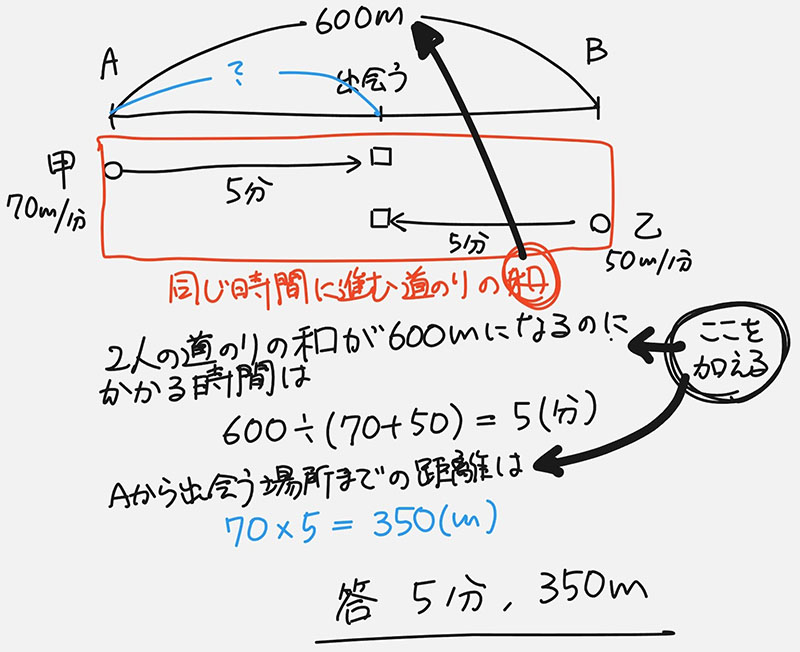 600m
A
B
?
出会う
甲
70m/分
5分
5分
乙
50m/分
同じ時間に進む道のりの和
2人の道のりの和が600mになるのに
かかる時間は
ここを
加える
600÷(70+50)=5(分)
Aから出会う場所までの距離は
70×5=350(m)
答 5分, 350m